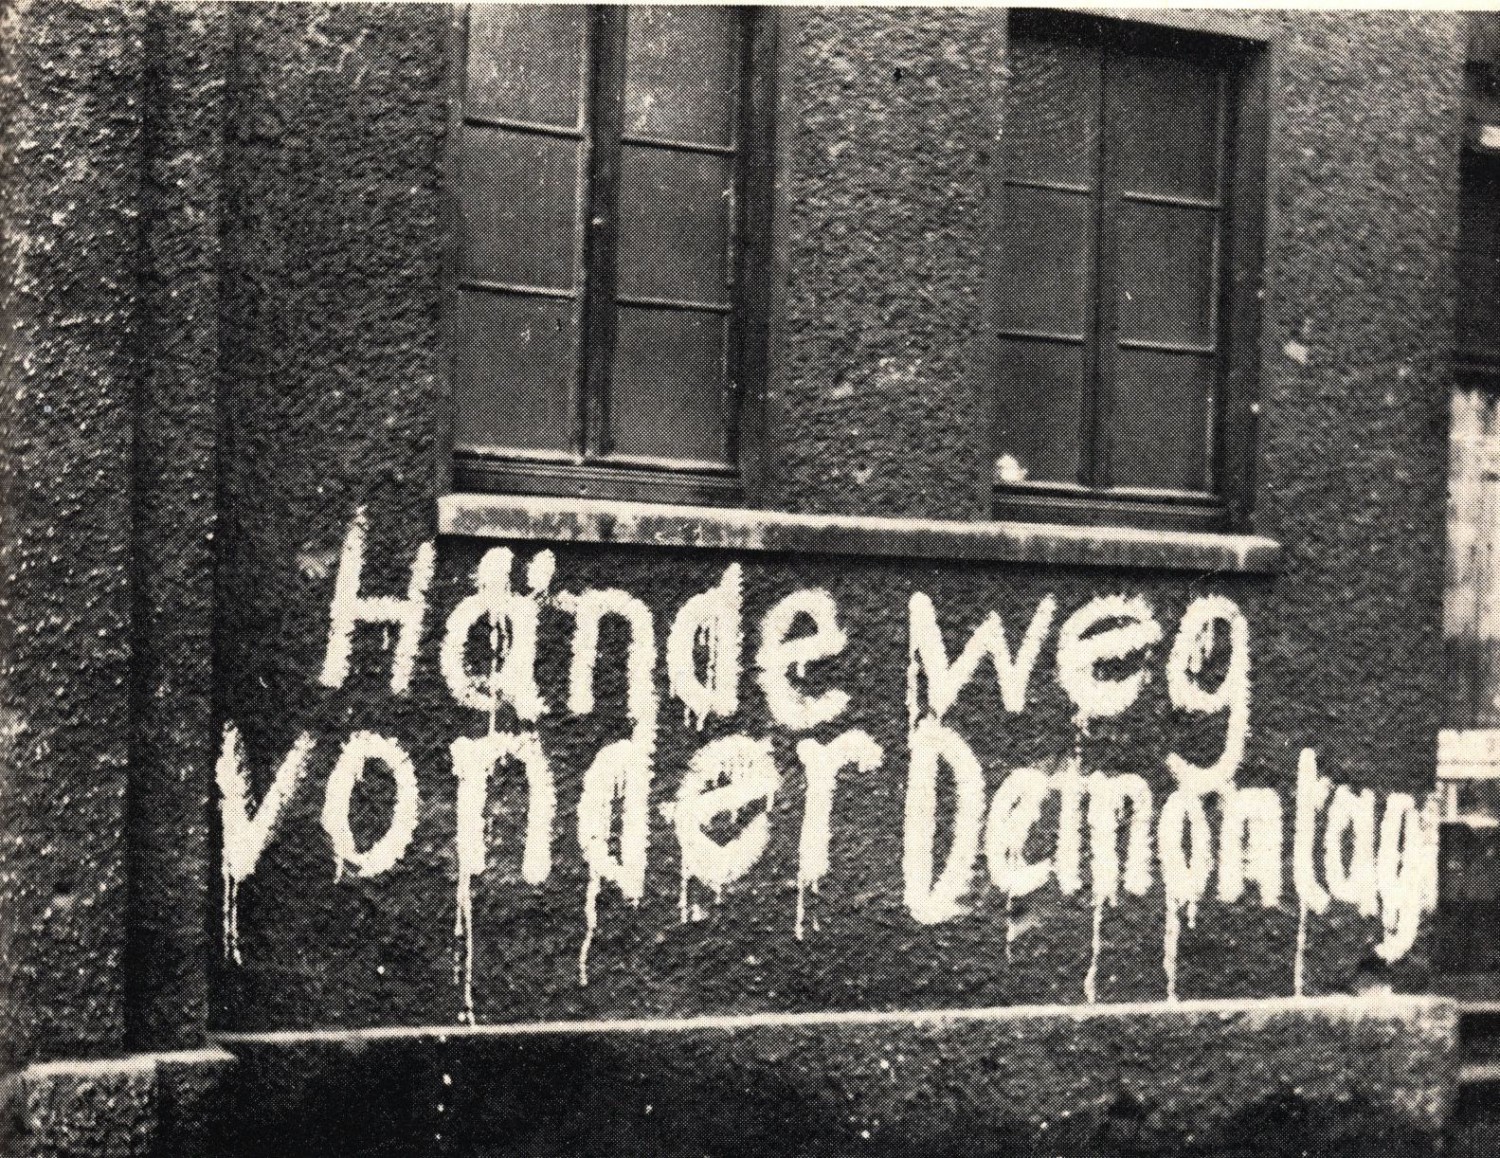 Hände weg
von der Demontag